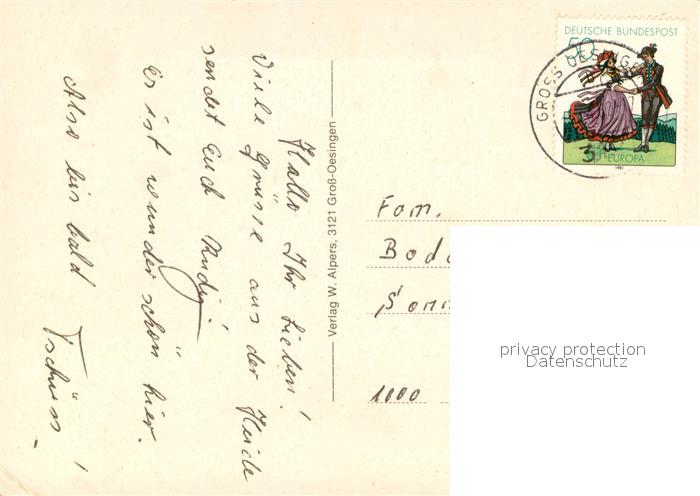 Hallo Ihr Lieben!
Viele Grüsse aus der Heide
sendet Euch Rudi!
Es ist wunderschön hier.
Also bis bald Tschüss!
Verlag W. Alpers, 3121 Groß-Oesingen
DEUTSCHE BUNDESPOST
50
EUROPA
1981
GROSS OESINGE
3
Fam.
Bod
Sonn
1000
privacy protection
Datenschutz